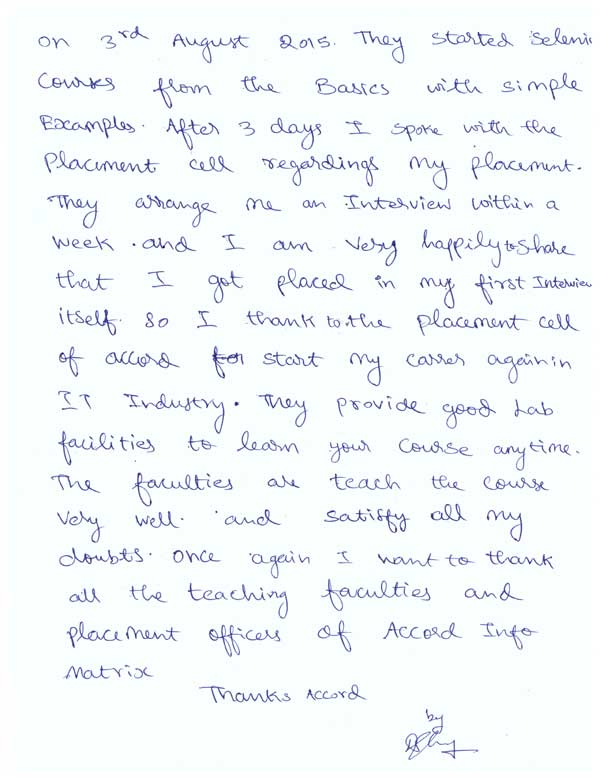 on 3rd August 2015. They started Seleni
Courses from the Basics with simple
Examples. After 3 days I spoke with the
Placement cell regardings my placement.
They arrange me an Interview within a
week . and I am very happily to share
that I got placed in my first Interview
itself. So I thank to the placement cell
of accord for start my carrer again in
IT Industry. They provide good Lab
facilities to learn your course anytime.
The faculties are teach the course
very well. and satisfy all my
doubts. Once again I want to thank
all the teaching faculties and
placement officers of Accord Info
Matrix
Thanks Accord
by